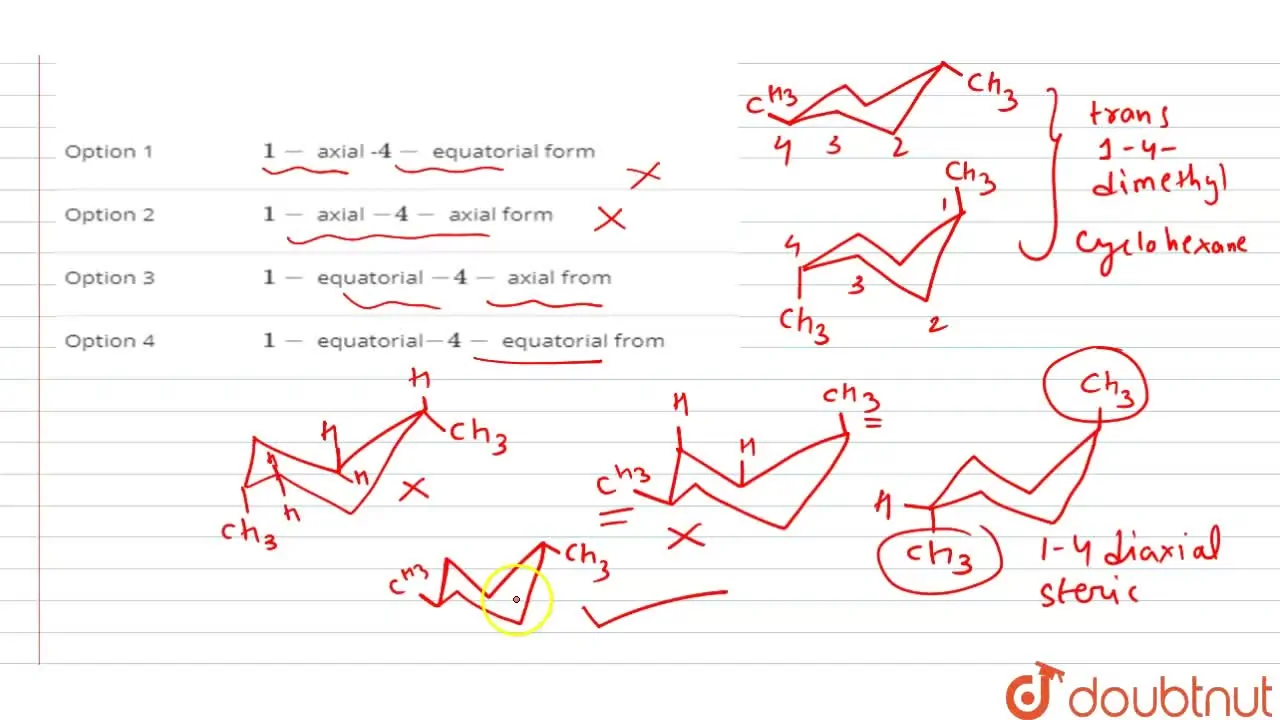 Option 1 1 - axial -4 - equatorial form
x
Option 2 1 - axial -4 - axial form
x
Option 3 1 - equatorial -4 - axial from
Option 4 1 - equatorial-4 - equatorial from
CH3
CH3
4 3 2
trans
1-4-
dimethyl
cyclohexane
CH3
1
4
3
2
CH3
H
H
CH3
H
H
H
CH3
x
H
CH3
H
CH3
x
CH3
H
CH3
1-4 diaxial
steric
CH3
CH3
doubtnut